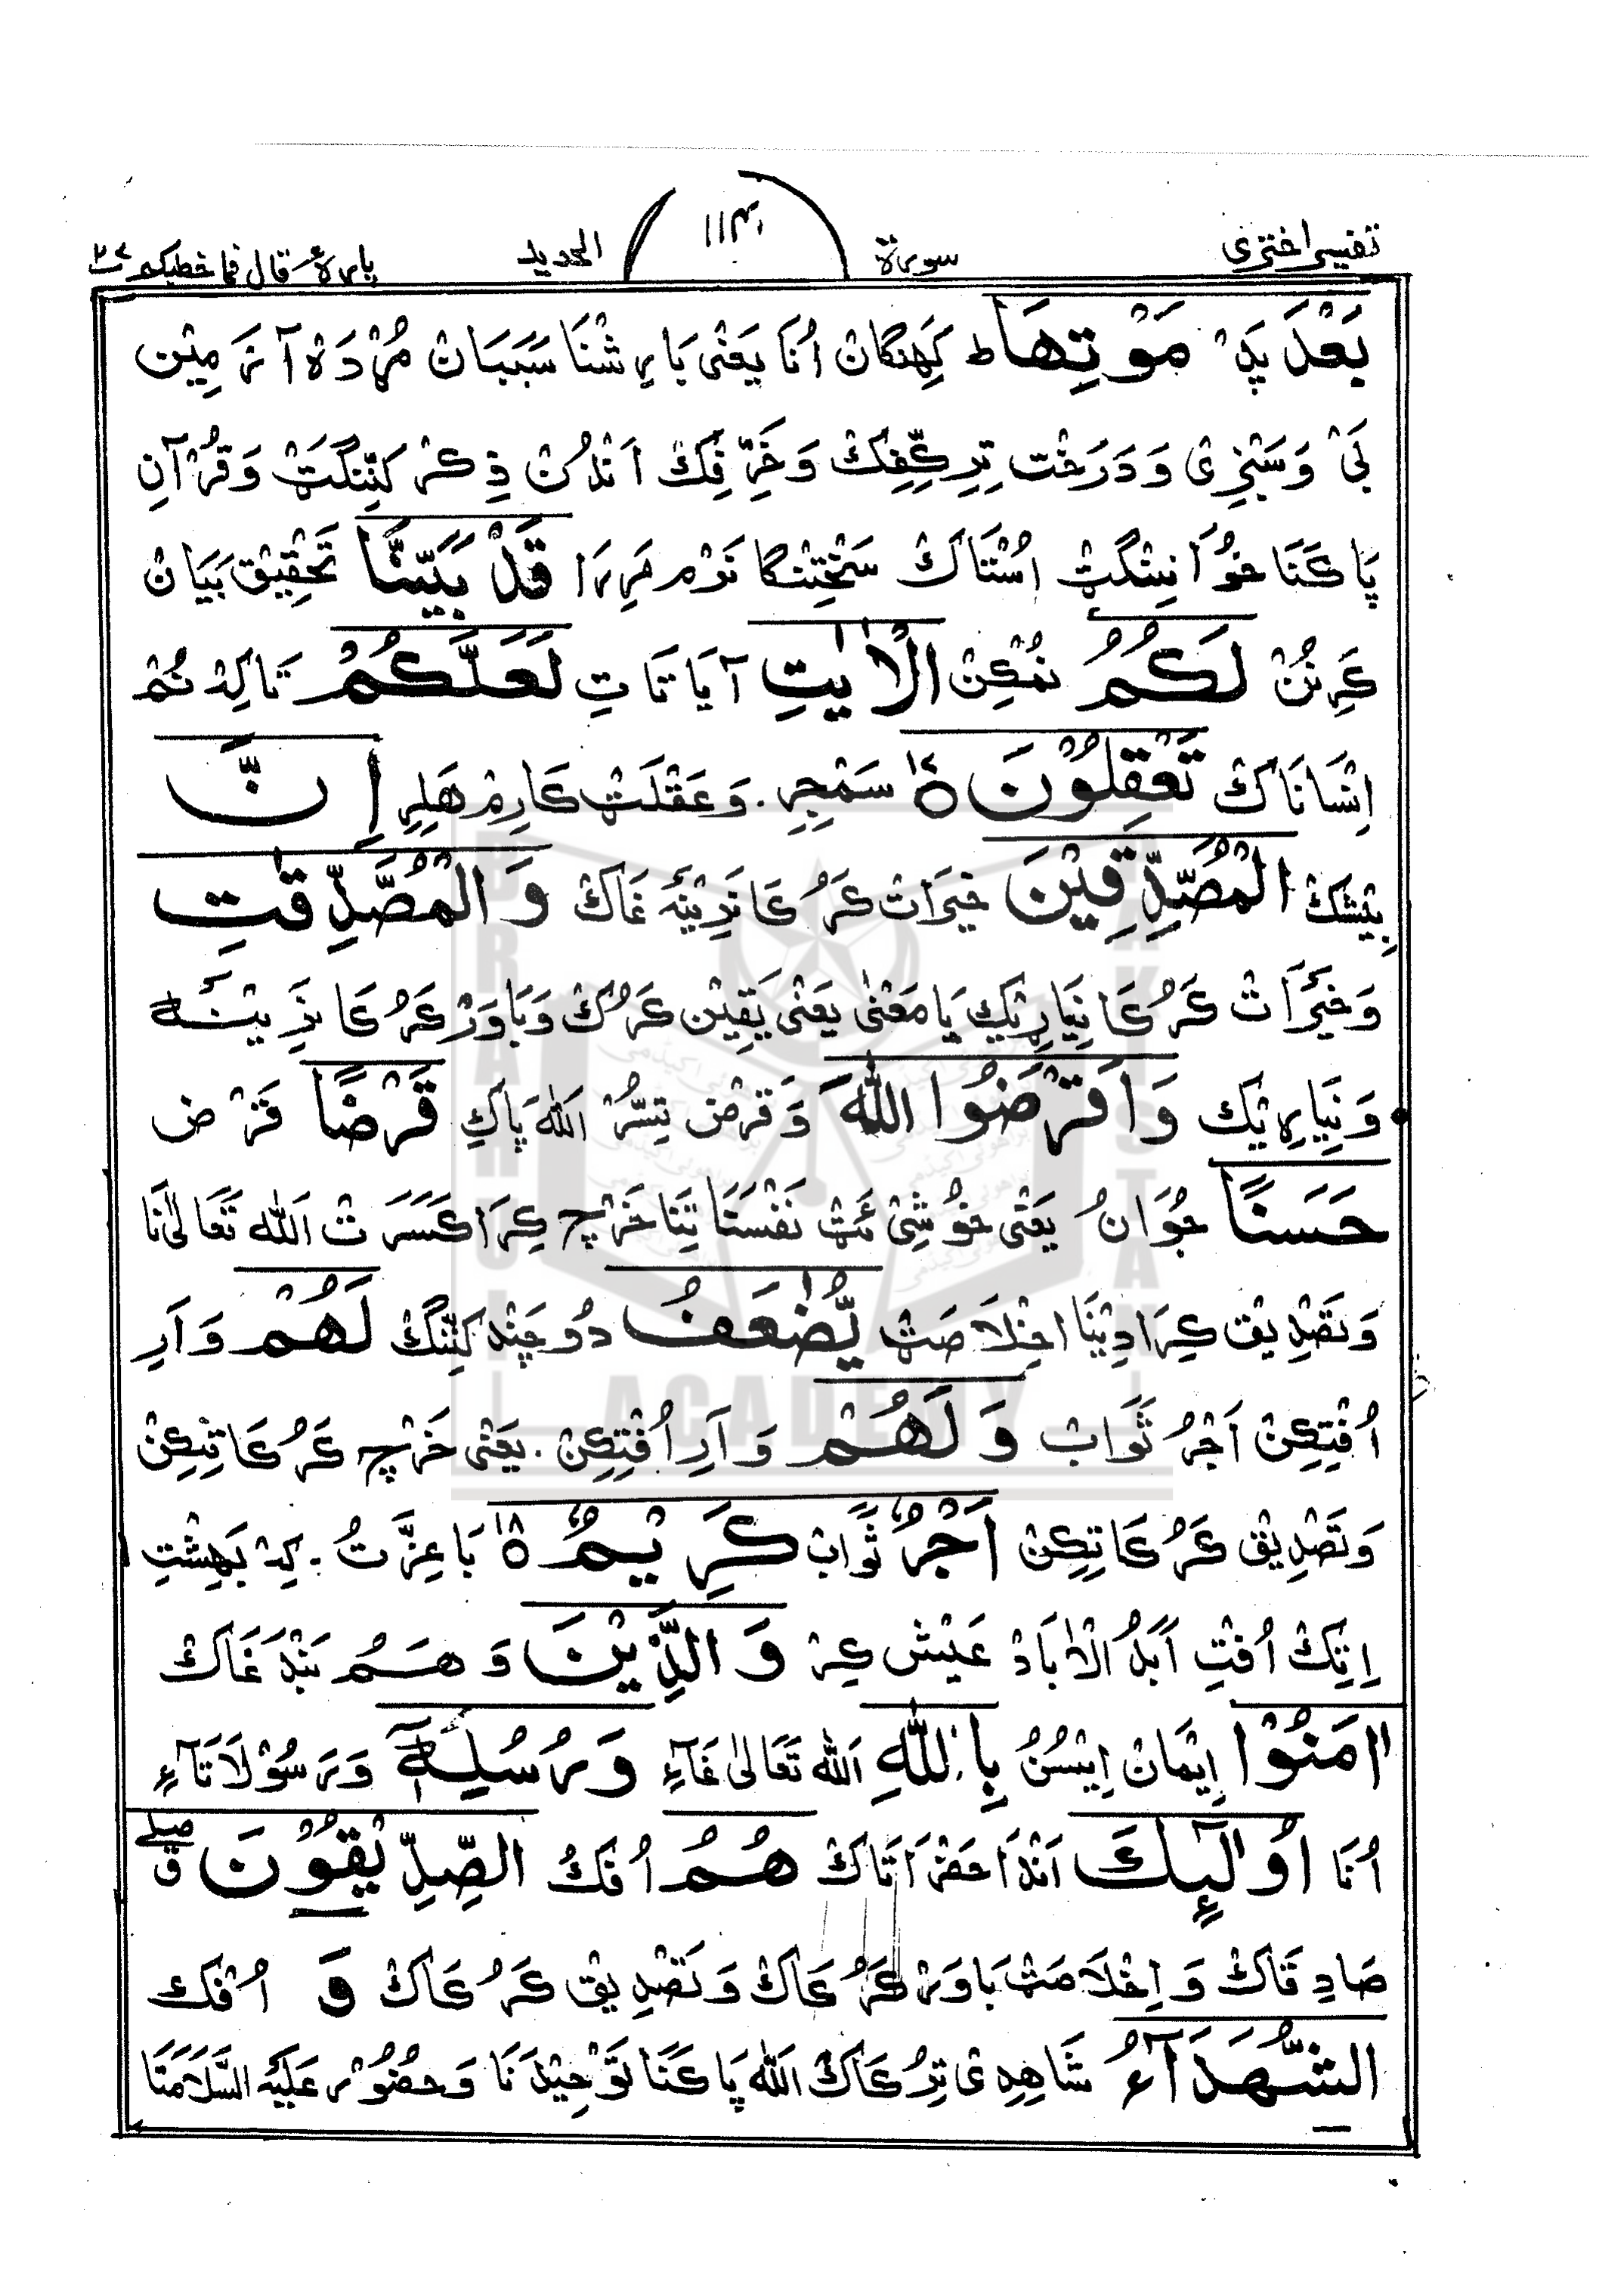 تفسیر اختری سورة الحدید پارہ قال فما خطبکم ٢٧
بَعْدَ پَدْ مَوْتِهَا ط کَہِنگَانْ اُنَا یَعْنٰی بَارِشْنَا سَبَبَانْ مُرْدَہْ آ زَمِیْن
لَیْ وَسَبْزِیْ وَدَرَخْت تِرِکِّفِکْ وَخَرِّفِکْ اَنْدُنْ ذِکْرْ کَنِّنْگَٹْ وَقُرْآنِ
پَاکَنَا خُوَانِنْگَٹْ اُسْتَاکْ سَخْتِنْگَا نَرْم مَرِرَا قَدْ بَیَّنَّا تَحْقِیْق بَیَانْ
کَرِنُنْ لَكُمُ نُمْکِنْ الْاٰیٰتِ آیَاتَاتِ لَعَلَّكُمْ تَاکِدْ نُمْ
اِنْسَانَاکْ تَعْقِلُوْنَ ۝١٧ سَمْجِرِ۔ وَعَقْلَتْ کَارِمْ هَلِرِ اِنَّ
بِیْشَکْ الْمُصَّدِّقِیْنَ خَیْرَاتْ کَرُکَا نَرِیْنَہ غَاکْ وَ الْمُصَّدِّقٰتِ
وَخَیْرَاتْ کَرُکَا نِیَارِیْک یَا مَعْنٰی یَعْنٰی یَقِیْن کَرُکْ وَبَاوَرْ کَرُکَا نَرِیْنَہ
وَنِیَارِیْک وَاَقْرَضُوا اللّٰهَ وَقَرْض تِسُّرْ اَللّٰه پَاکِ قَرْضًا قَرْض
حَسَنًا جُوَانُ یَعْنٰی خُوشِیْ ئَٹْ نَفْسَنَا تِنَا خَرْچ کِرَا کَسَرَتْ اَللّٰه تَعَالٰی نَا
وَتَصْدِیْق کِرَا دِیْنَا اِخْلَاصَٹْ یُّضٰعَفُ دُوچَنْد کَنِّنْگ لَهُمْ وَآرِ
اُفْتِکِنْ اَجْرُ ثَوَابْ وَ لَهُمْ وَآرِ اُفْتِکِنْ۔ یَعْنٰی خَرْچ کَرُکَاتِکِنْ
وَتَصْدِیْق کَرُکَاتِکِنْ اَجْرٌ ثَوَابْ كَرِیْمٌ ۝١٨ بَا عِزَّتُ۔ کِدْ بَهِشْتِ
اِتِکْ اُفْتِ اَبَدُ الْاٰبَادْ عَیْش کِرْ وَ الَّذِیْنَ وَهَمُ بَنْدَغَاکْ
اٰمَنُوْا اِیْمَانْ اِیْسُنُ بِاللّٰهِ اَللّٰه تَعَالٰی غَآءِ وَرُسُلِهٖۤ وَرَسُوْلَاتَآءِ
اُنَا اُولٰٓئِكَ اَنْدَا حَضْرَاتَاکْ هُمُ اُفْکُ الصِّدِّیْقُوْنَ ق صلے
صَادِقَاکْ وَاِخْلَاصَٹْ بَاوَرْ کَرُکَاکْ وَتَصْدِیْق کَرُکَاکْ وَ اُفْک
الشُّهَدَآءُ شَاهِدِیْ تِرُکَاکْ اَللّٰه پَاکَنَا تَوْحِیْدَنَا وَحُضُوْر عَلَیْہِ السَّلَامَنَا
BRAHUI ACADEMY PAKISTAN